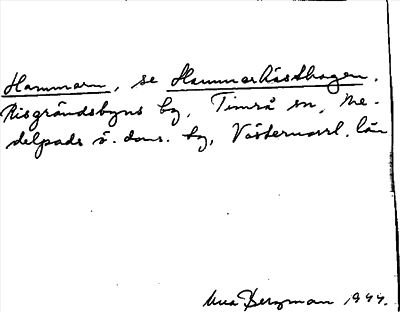 Hammarn, se Hammarhästhagen.
Risgrändsbyns by, Timrå sn, Me-
delpads ö. doms. tg, Västernorrl. län
Bergman 1944.